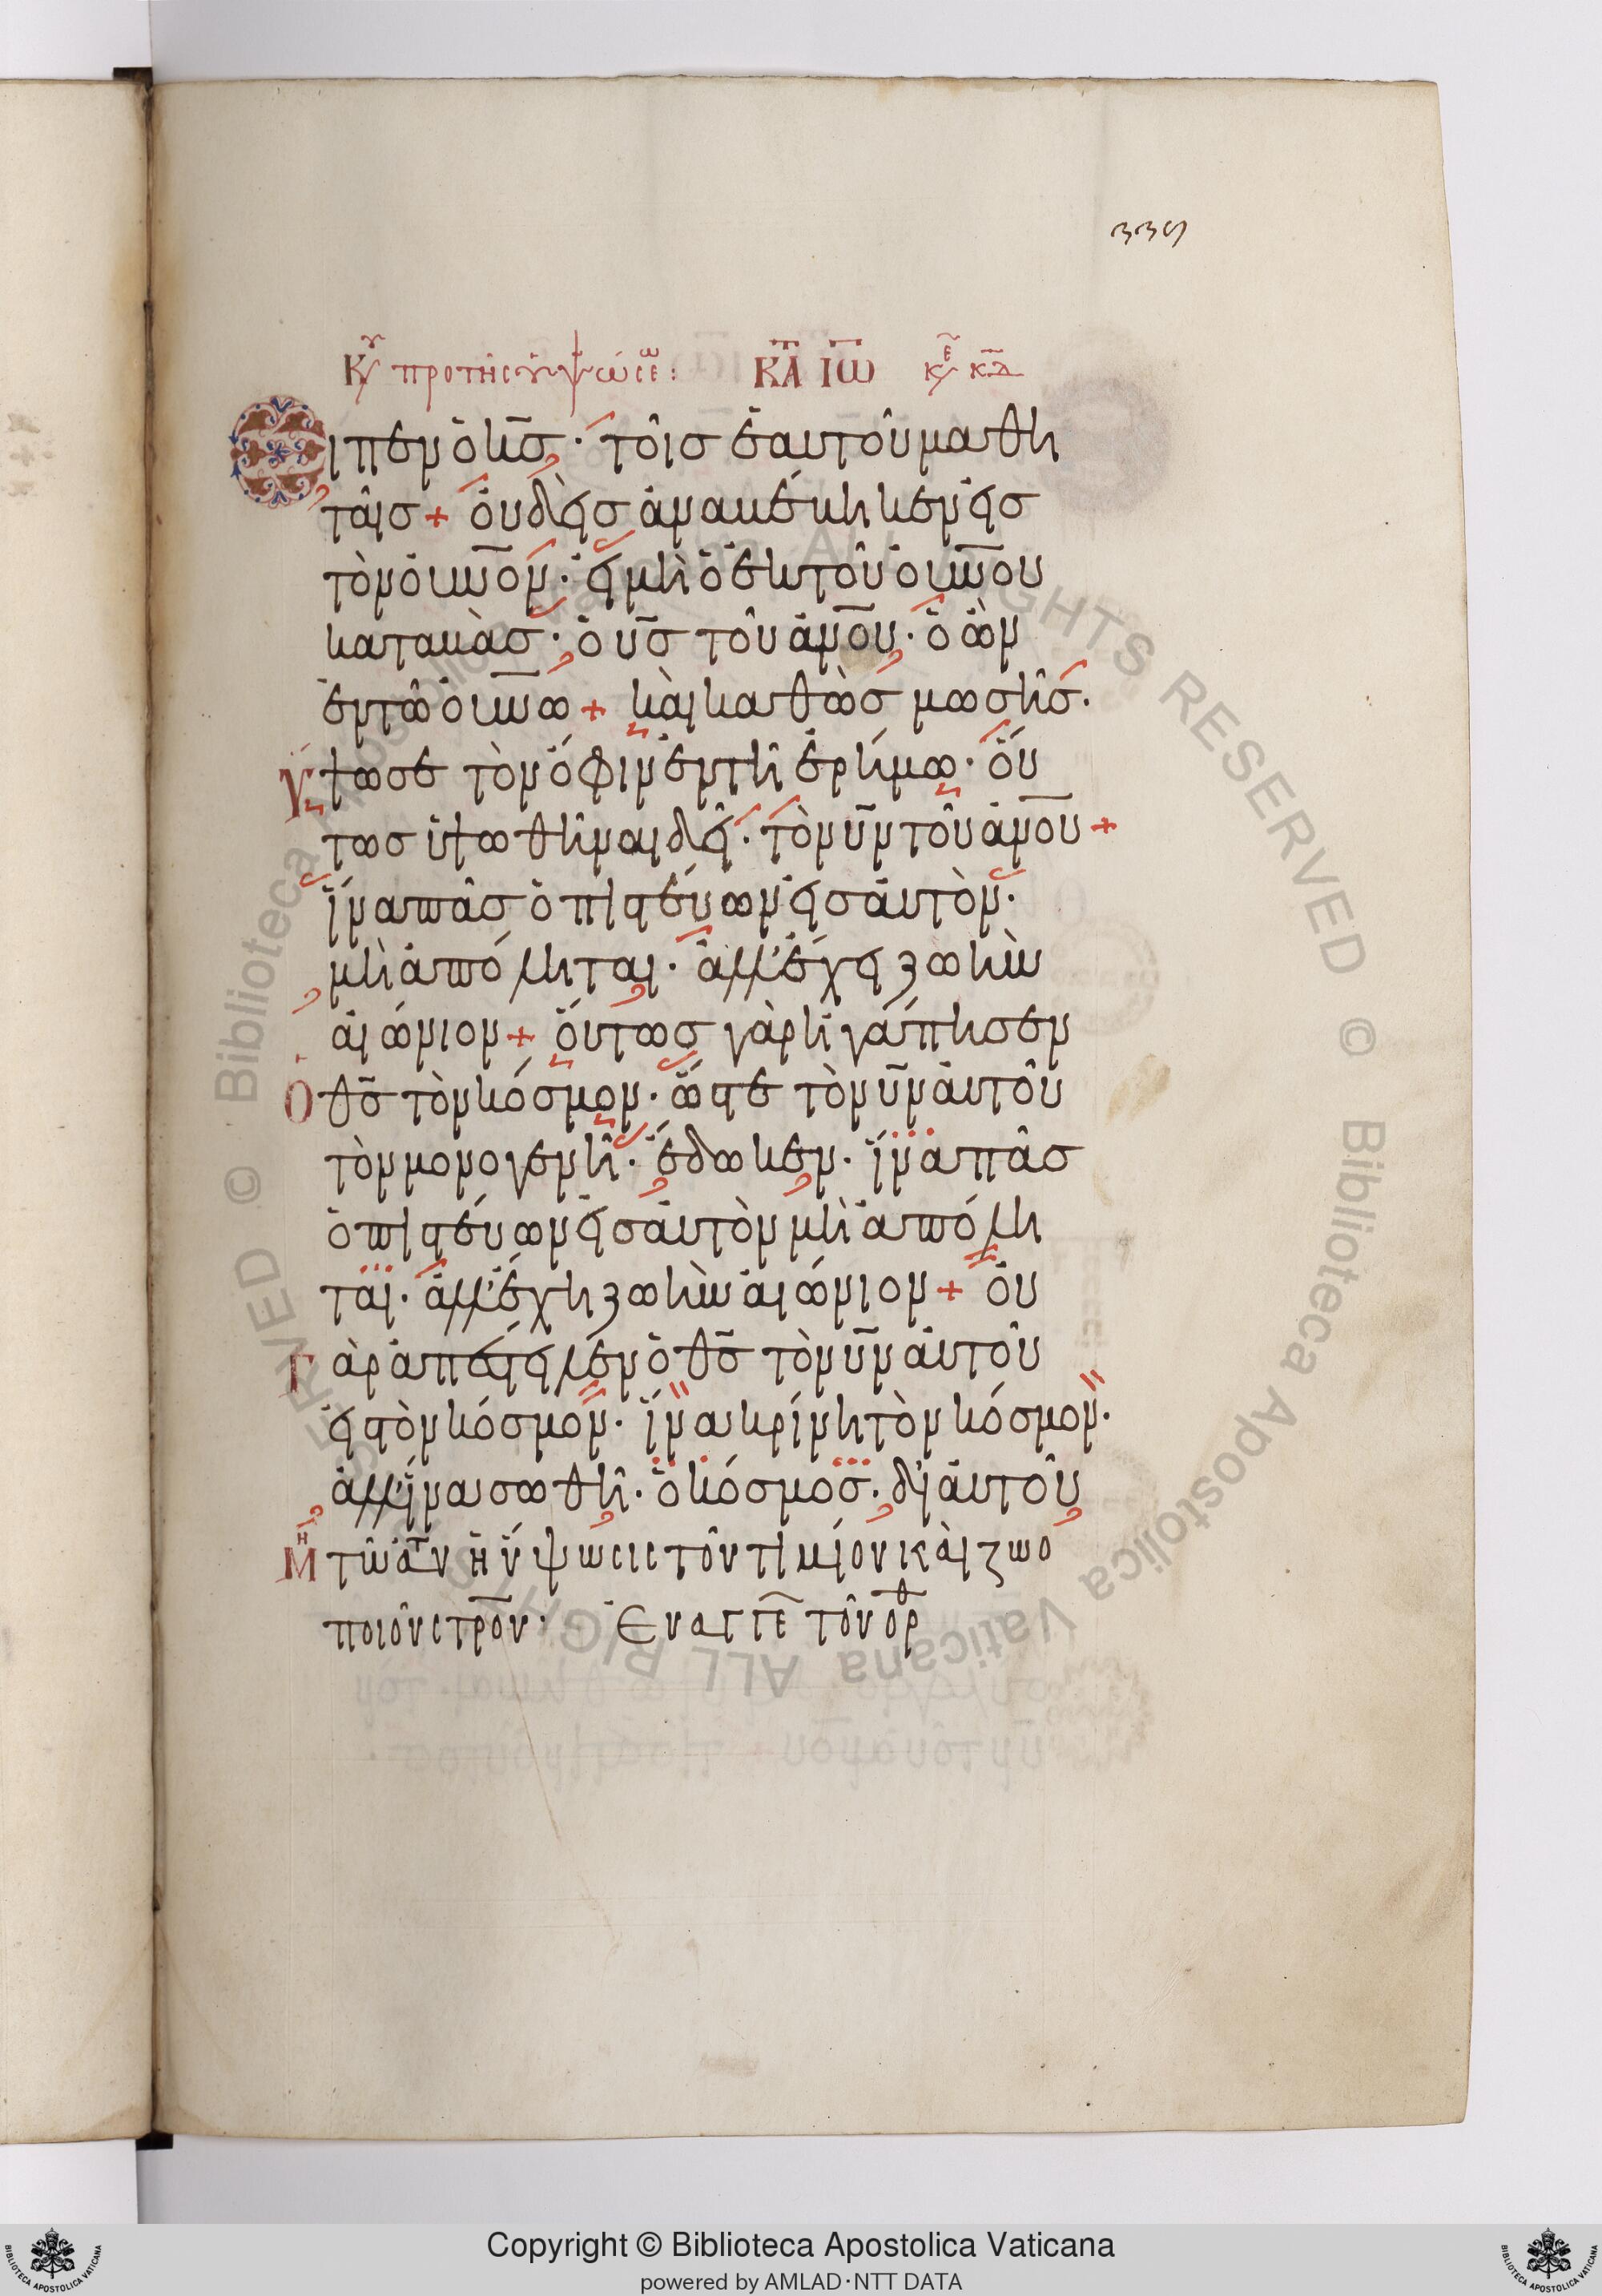 339
Κυ προ της υψώσε: ΚΤΑ ΙΩ κε κδ
Ειπεν ὁ κ̅σ̅· τοῖσ ἑαυτοῦ μαθη
ταῖσ + ὀυδεὶσ ἀναβέβηκεν εἰσ
τὸν ὀυ̅ν̅ον· εἰ μὴ ὁ ἐκ τοῦ ὀυ̅ν̅ου
καταβὰσ· ὁ υ̅σ̅ τοῦ ἀν̅ο̅υ̅· ὁ ὢν
ἐν τῶ ὀυ̅ν̅ω + καὶ καθὼσ μωσῆσ·
Ὕψωσε τὸν ὄφιν ἐν τῆ ἐρήμω· ὅυ
τωσ ὑψωθῆναι δεῖ· τὸν υ̅ν̅ τοῦ ἀν̅ο̅υ̅ +
ἵνα πᾶσ ὁ πιστέυων εἰσ ἀυτὸν·
μὴ ἀπόληται· ἀλλ' ἔχει ζωὴν
αἰώνιον + ὅυτωσ γὰρ ἠγάπησεν
Ὁ θ̅σ̅ τὸν κόσμον· ὥστε τὸν υ̅ν̅ ἀυτοῦ
τὸν μονογενῆ· ἔδωκεν· ἵνα πᾶσ
ὁ πιστέυων εἰσ ἀυτὸν μὴ ἀπόλη
ται· ἀλλ' ἔχη ζωὴν αἰώνιον + ὀυ
Γὰρ ἀπέστειλεν ὁ θ̅σ̅ τὸν υ̅ν̅ ἀυτοῦ
εἰσ τὸν κόσμον· ἵνα κρίνη τὸν κόσμον·
ἀλλ' ἵνα σωθῆ· ὁ κόσμοσ· δι' ἀυτοῦ
Μη τῶ ἀτν ἡ ὕψωσις τοῦ τιμίου καὶ ζωο
ποιοῦ στρ̅ο̅υ̅· Ευαγγε τοῦ ὀρθ
Copyright © Biblioteca Apostolica Vaticana
powered by AMLAD·NTT DATA
© Biblioteca Apostolica Vaticana ALL RIGHTS RESERVED © Biblioteca Apostolica Vaticana ALL RIGHTS RESERVED